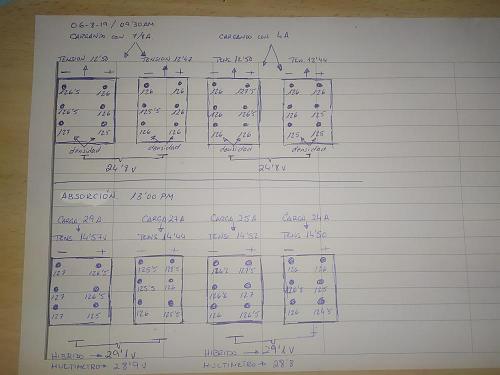 06-8-19 / 09'30AM
CARGANDO CON 7/8A CARGANDO CON 4A
TENSION 12'50 TENSION 12'47 TENS 12'50 TEN. 12'44
- + - + - + - +
126'5 126 126 126 126 127'5 126 126
126 126'5 125'5 126 126 126'5 126 125
127 125 126 126 126 126 125 125
densidad densidad densidad densidad
24'8 V 24'8 V
ABSORCIÓN 13'00 PM
CARGA 29A CARGA 27A CARGA 25A CARGA 24A
TENS 14'57V TENS 14'44 TENS 14'52 TENS 14'50
- + - + - + - +
127 126'5 125'5 125'5 126'5 127'5 126 126
127 126'5 125'5 126 126'5 127 126'5 125
127 125 126 125'5 126 126'5 126 124'5
HIBRIDO → 29'1V HIBRIDO → 29'1V
MULTIMETRO → 28'9V MULTIMETRO → 28'8